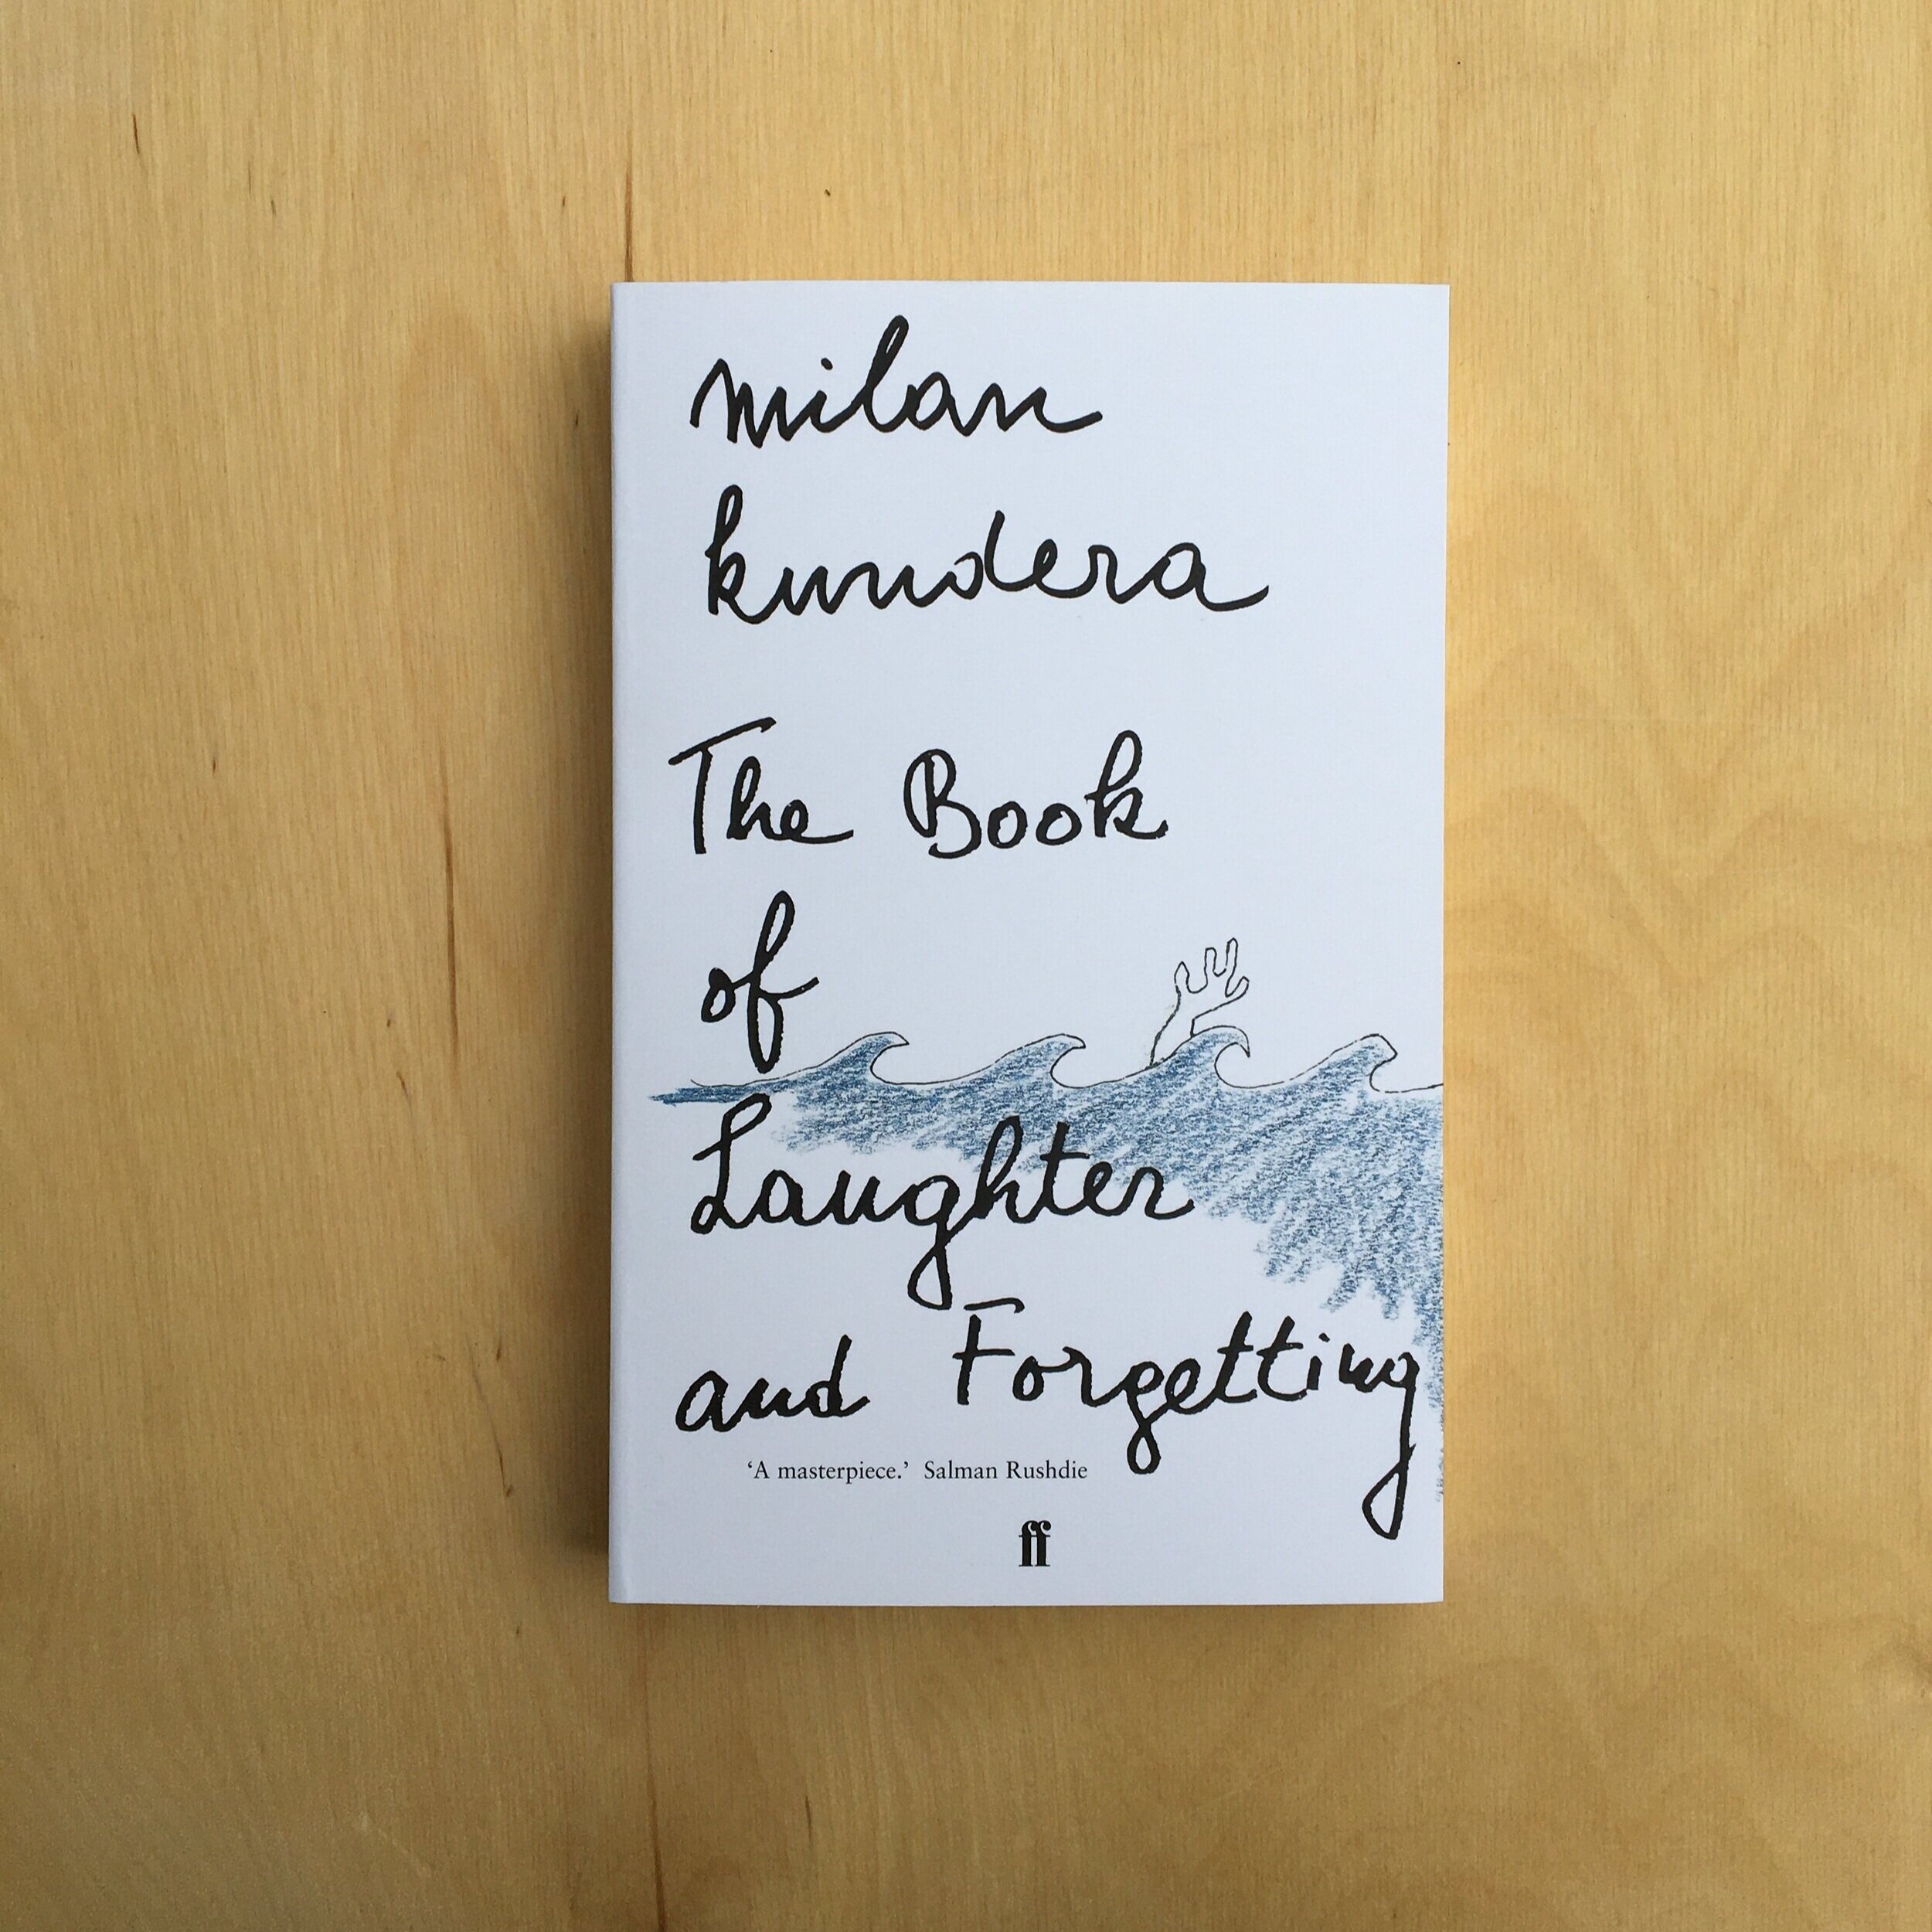 milan
kundera
The Book
of
Laughter
and Forgetting
‘A masterpiece.’ Salman Rushdie
ff